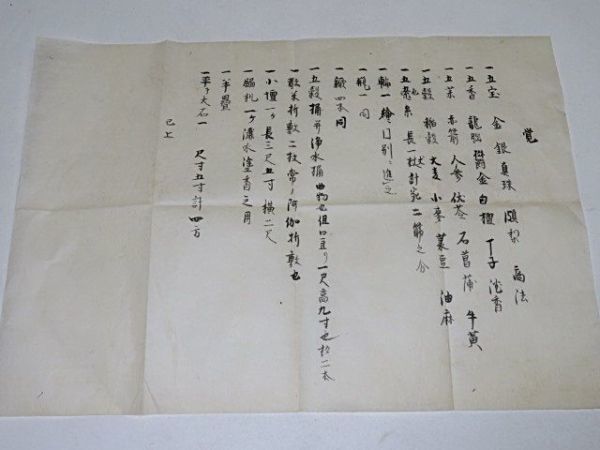 覚
一五宝 金 銀 真珠 頗梨 商法
一五香 龍脳 欝金 白檀 丁子 沈香
一五薬 赤箭 人参 伏苓 石菖蒲 牛黄
一五穀 稲穀 大麦 小麦 菉豆 油麻
一五色糸 長一杖計宛 二筋之分
一輪一 絵ハ別ニ進之
一瓶一 同
一橛四本 同
一五穀桶并浄水桶 曲物也 但口亘リ一尺 高九寸也
一散米折敷二枚 常ノ阿伽折敷也
一小壇一ケ 長三尺五寸 横二尺
一錫礼一ケ 灑水塗香之用
一半畳
一平ラ大石一 尺寸五寸計四方
已上